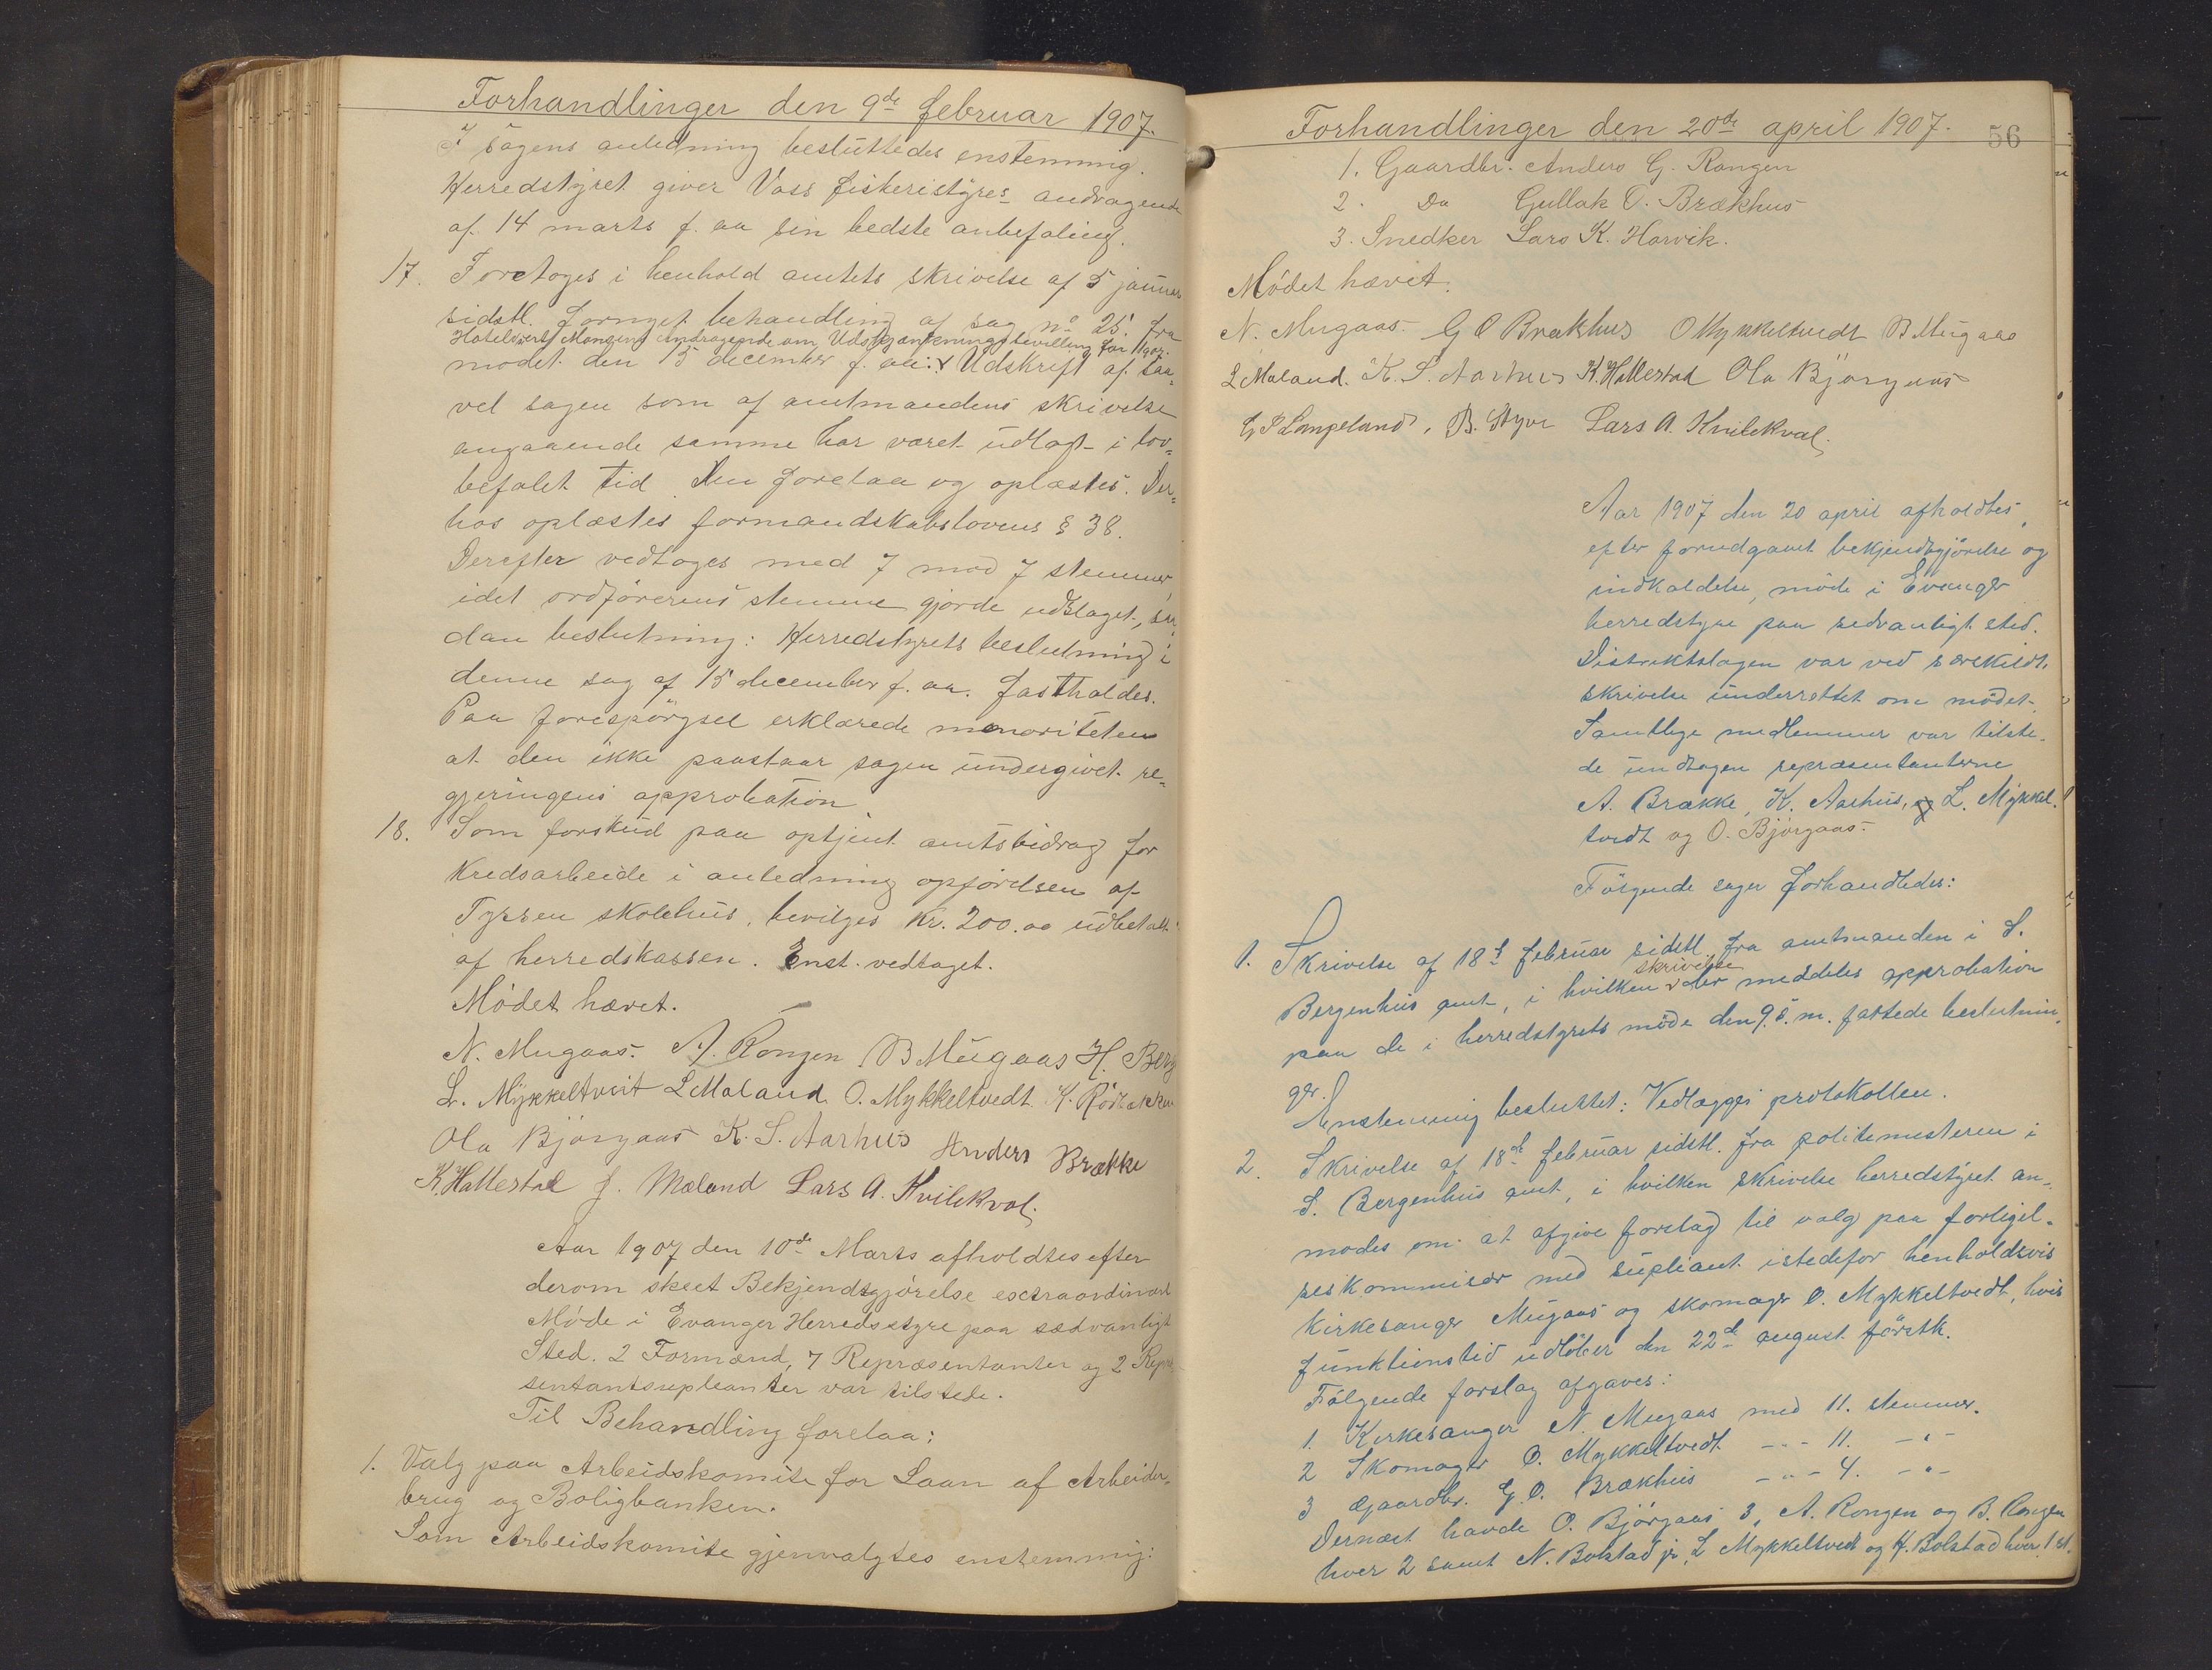 Forhandlinger den 9de februar 1907.
I sagens anledning besluttedes enstemmig.
Herredstyret giver Voss fiskeristyres andragende
af 14 marts f. aa sin bedste anbefaling.
17. Foretoges i henhold amtets skrivelse af 5 januar
sidstl. fornyet behandling af sag no 25. fra
Hotelvert Monsens Andragende om Udskjænkningsbevilling for 1907.
mødet den 15 december f. aa: Udskrift af saa-
vel sagen som af amtmandens skrivelse
angaaende samme har været udlagt i lov-
befalet tid. Den forelaa og oplæstes. Der-
hos oplæstes formandskabslovens § 38.
Derefter vedtoges med 7 mod 7 stemmer,
idet ordførerens stemme gjorde udslaget, saa-
dan beslutning: Herredstyrets beslutning i
denne sag af 15 december f. aa. fastholdes.
Paa forespørgsel erklærede menoriteten
at den ikke paastaar sagen undergivet re-
gjeringens approbation
18. Som forskud paa optjent amtsbidrag for
Kredsarbeide i anledning opførelsen af
Tyssen skolehus, bevilges Kr. 200.00 udbetalt
af herredskassen. Enst. vedtaget.
Mødet hævet.
N. Mugaas. A. Rongen B Mugaas H. Berg
L. Mykkeltveit L Møland O. Mykkeltvedt K. Rødbækken
Ola Bjørgaas K. S. Aarhus Anders Brække
K. Hallestad J. Mæland Lars A. Kvilekval.
Aar 1907 den 10de Marts afholdtes efter
derom skeet Bekjendtgjørelse exstraordinært
Møde i Evanger Herredsstyre paa sædvanligt
Sted. 2 Formænd, 7 Repræsentanter og 2 Repræ-
sentantsupleanter var tilstede.
Til Behandling forelaa:
1. Valg paa Arbeidskomite for Laan af Arbeider-
brug og Boligbanken.
Som Arbeidskomite gjenvalgtes enstemmig:
Forhandlinger den 20de april 1907.
56
1. Gaardbr. Anders G. Rongen
2. Do Gullak O. Brækhus
3. Snedker Lars K. Horvik.
Mødet hævet.
N. Mugaas. G O Brækhus O Mykkeltvedt B Mugaas
L Møland. K. S. Aarhus K. Hallestad Ola Bjørgaas
B. Styve Lars A. Kvilekval.
Aar 1907 den 20 april afholdtes,
efter forudgaaet bekjendtgjørelse og
indkaldelse, møde i Evanger
herredstyre paa sedvanligt sted.
Distriktslægen var ved særskildt
skrivelse underrettet om mødet.
Samtlige medlemmer var tilste-
de undtagen repræsentanterne
A. Brække, K. Aarhus, og L. Mykkel-
tvedt og O. Bjørgaas.
Følgende sager forhandledes:
1. Skrivelse af 18de februar sidstl. fra amtmanden i S.
Bergenhus amt, i hvilken skrivelse der meddeles approbation
paa de i herredstyrets møde den 9. s. m. fattede beslutnin-
ger.
Enstemmig besluttet: Vedlægges protokollen.
2. Skrivelse af 18de februar sidstl. fra politimesteren i
S. Bergenhus amt, i hvilken skrivelse herredstyret an-
modes om at afgive forslag til valg paa forligel-
seskommisær med supleant istedefor henholdsvis
kirkesanger Mugaas og skomager O. Mykkeltvedt, hvis
funktionstid udløber den 22de august førstk.
Følgende forslag afgaves:
1. Kirkesanger N. Mugaas med 11. stemmer.
2 Skomager O. Mykkeltvedt -"- 11. -"-
3 Gaardbr. G. O. Brækhus -"- 4. -"-
Dernæst havde O. Bjørgaas 3, A. Rongen og B. Rongen
hver 2 samt N. Bolstad jr, L Mykkeltvedt og H. Bolstad hver 1 st.